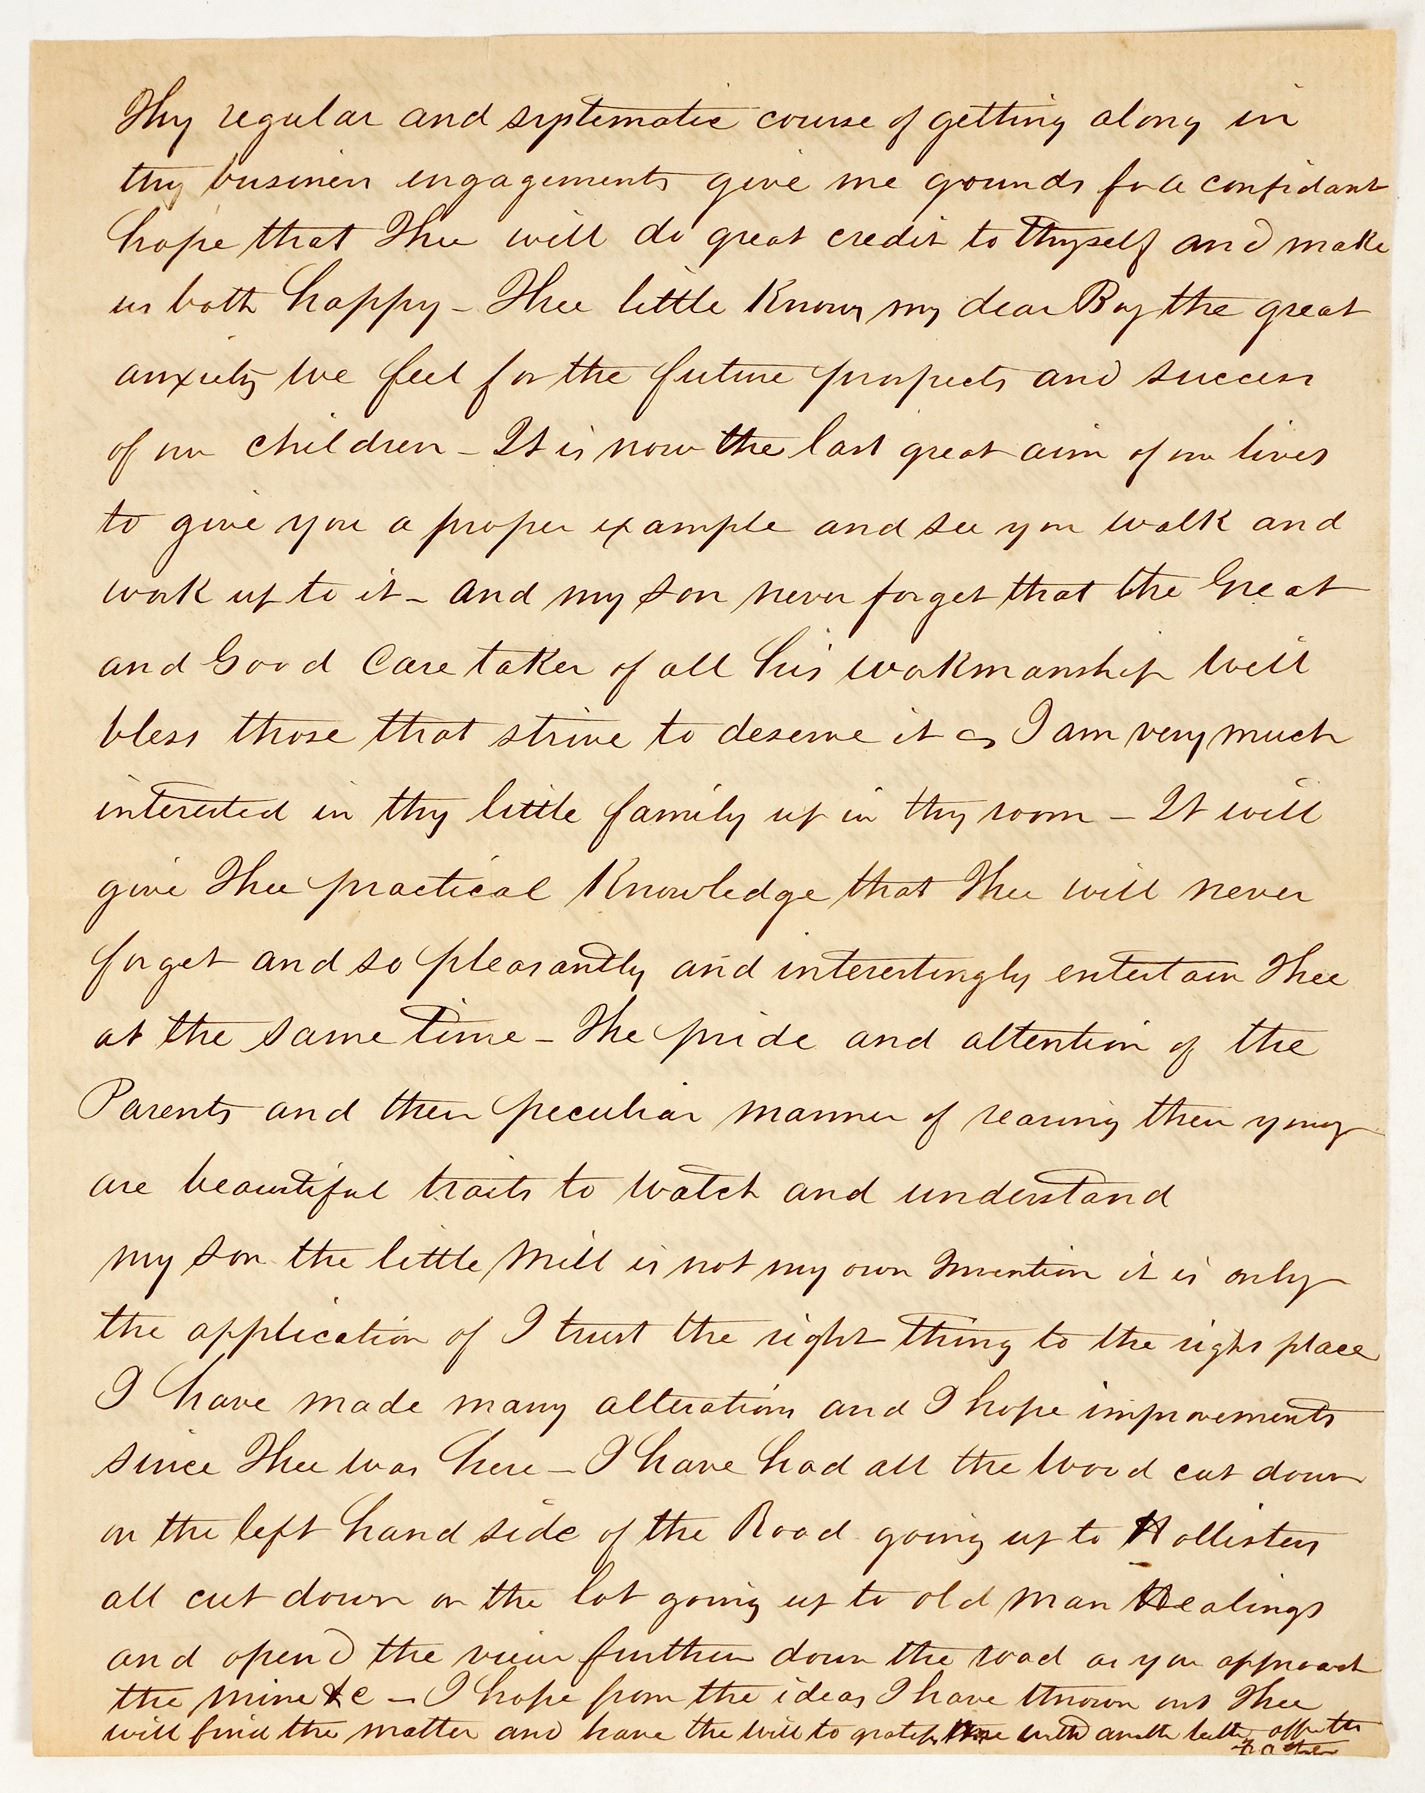 Thy regular and systematic course of getting along in
thy business engagements give me grounds for a confidant
hope that Thee will do great credit to Thyself and make
us both happy - Thee little Knows my dear Boy the great
anxiety we feel for the future prospects and success
of our children - It is now the last great aim of our lives
to give you a proper example and see you walk and
work up to it - and my son never forget that the Great
and Good Care taker of all his workmanship will
bless those that strive to deserve it I am very much
interested in thy little family up in thy room - It will
give Thee practical Knowledge that Thee will never
forget and so pleasantly and interestingly entertain Thee
at the same Time - The pride and attention of the
Parents and their peculiar manner of rearing their young
are beautiful traits to watch and understand
my son the little Mill is not my own Invention it is only
the application of I trust the right thing to the right place
I have made many alterations and I hope improvements
since Thee was here - I have had all the Wood cut down
on the left hand side of the Road going up to Hollisters
all cut down on the lot going up to old man Healings
and opend the view further down the road as you approach
the mine &c - I hope from the ideas I have thrown out Thee
will find the matter and have the will to me with another letter